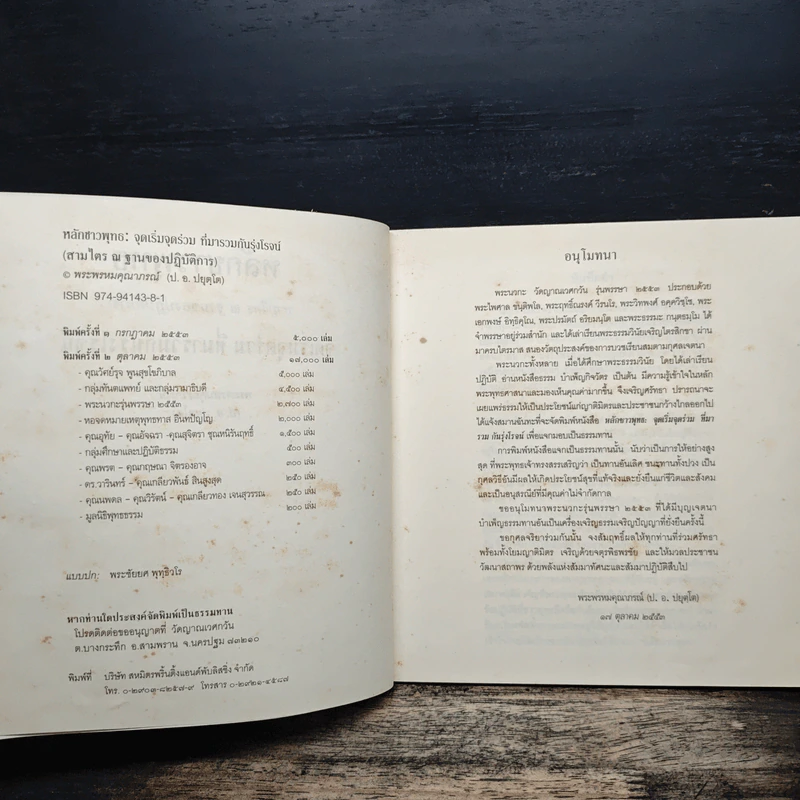 หลักชาวพุทธ: จุดเริ่มจุดร่วม ที่มารวมกันรุ่งโรจน์
(สามไตร ณ ฐานของปฏิบัติการ)
© พระพรหมคุณาภรณ์ (ป. อ. ปยุตฺโต)
ISBN 974-94143-8-1
พิมพ์ครั้งที่ ๑ กรกฎาคม ๒๕๕๓ ๕,๐๐๐ เล่ม
พิมพ์ครั้งที่ ๒ ตุลาคม ๒๕๕๓ ๑๗,๐๐๐ เล่ม
- คุณวัศย์รุจ พูนสุขโชภิบาล ๕,๐๐๐ เล่ม
- กลุ่มทันตแพทย์ และกลุ่มรามาธิบดี ๔,๕๐๐ เล่ม
- พระนวกะรุ่นพรรษา ๒๕๕๓ ๒,๗๐๐ เล่ม
- หอจดหมายเหตุพุทธทาส อินทปัญโญ ๒,๐๐๐ เล่ม
- คุณอุทัย – คุณอัจฉรา -คุณสุจิตรา ชุณหนิรันฤทธิ์ ๑,๕๐๐ เล่ม
- กลุ่มศึกษาและปฏิบัติธรรม ๕๐๐ เล่ม
- คุณพรต – คุณกฤษณา จิตรองอาจ ๓๐๐ เล่ม
- ดร.วารินทร์ – คุณเกลียวพันธ์ สินสูงสุด ๒๕๐ เล่ม
- คุณนพดล – คุณวิรัตน์ – คุณเกลียวทอง เจนสุวรรณ ๒๕๐ เล่ม
- มูลนิธิพุทธธรรม ๒๐๐ เล่ม
แบบปก: พระชัยยศ พุทฺธิวโร
หากท่านใดประสงค์จัดพิมพ์เป็นธรรมทาน
โปรดติดต่อขออนุญาตที่ วัดญาณเวศกวัน
ต.บางกระทึก อ.สามพราน จ.นครปฐม ๗๓๒๑๐
พิมพ์ที่ บริษัท สหมิตรพริ้นติ้งแอนด์พับลิสชิ่ง จำกัด
โทร. ๐-๒๙๐๓-๘๒๕๗-๙ โทรสาร ๐-๒๙๒๑-๔๕๘๗
อนุโมทนา
พระนวกะ วัดญาณเวศกวัน รุ่นพรรษา ๒๕๕๓ ประกอบด้วย
พระไพศาล ขนฺติพโล, พระฤทธิ์ณรงค์ วีรนโร, พระวิทพงศ์ อคฺควิชฺโช, พระ
เอกพงษ์ อิทฺธิคุโณ, พระปรมัตถ์ อริยมนุโต และพระธรรมะ กนฺตธมฺโม ได้
จำพรรษาอยู่ร่วมสำนัก และได้เล่าเรียนพระธรรมวินัยเจริญไตรสิกขา ผ่าน
มาครบไตรมาส สนองวัตถุประสงค์ของการบวชเรียนสมตามกุศลเจตนา
พระนวกะทั้งหลาย เมื่อได้ศึกษาพระธรรมวินัย โดยได้เล่าเรียน
ปฏิบัติ อ่านหนังสือธรรม บำเพ็ญกิจวัตร เป็นต้น มีความรู้เข้าใจในหลัก
พระพุทธศาสนาและมองเห็นคุณค่ามากขึ้น จึงเจริญศรัทธา ปรารถนาจะ
เผยแพร่ธรรมให้เป็นประโยชน์แก่ญาติมิตรและประชาชนกว้างไกลออกไป
ได้แจ้งสมานฉันทะที่จะจัดพิมพ์หนังสือ หลักชาวพุทธ: จุดเริ่มจุดร่วม ที่มา
รวม กันรุ่งโรจน์ เพื่อแจกมอบเป็นธรรมทาน
การพิมพ์หนังสือแจกเป็นธรรมทานนั้น นับว่าเป็นการให้อย่างสูง
สุด ที่พระพุทธเจ้าทรงสรรเสริญว่า เป็นทานอันเลิศ ชนะทานทั้งปวง เป็น
กุศลวิธีอันมีผลให้เกิดประโยชน์สุขที่แท้จริงและยั่งยืนแก่ชีวิตและสังคม
และเป็นอนุสรณีย์ที่มีคุณค่าไม่จำกัดกาล
ขออนุโมทนาพระนวกะรุ่นพรรษา ๒๕๕๓ ที่ได้มีบุญเจตนา
บำเพ็ญธรรมทานอันเป็นเครื่องเจริญธรรมเจริญปัญญาที่ยั่งยืนครั้งนี้
ขอกุศลจริยาร่วมกันนั้น จงสัมฤทธิ์ผลให้ทุกท่านที่ร่วมศรัทธา
พร้อมทั้งโยมญาติมิตร เจริญด้วยจตุรพิธพรชัย และให้มวลประชาชน
วัฒนาสถาพร ด้วยพลังแห่งสัมมาทัศนะและสัมมาปฏิบัติสืบไป
พระพรหมคุณาภรณ์ (ป. อ. ปยุตฺโต)
๑๗ ตุลาคม ๒๕๕๓